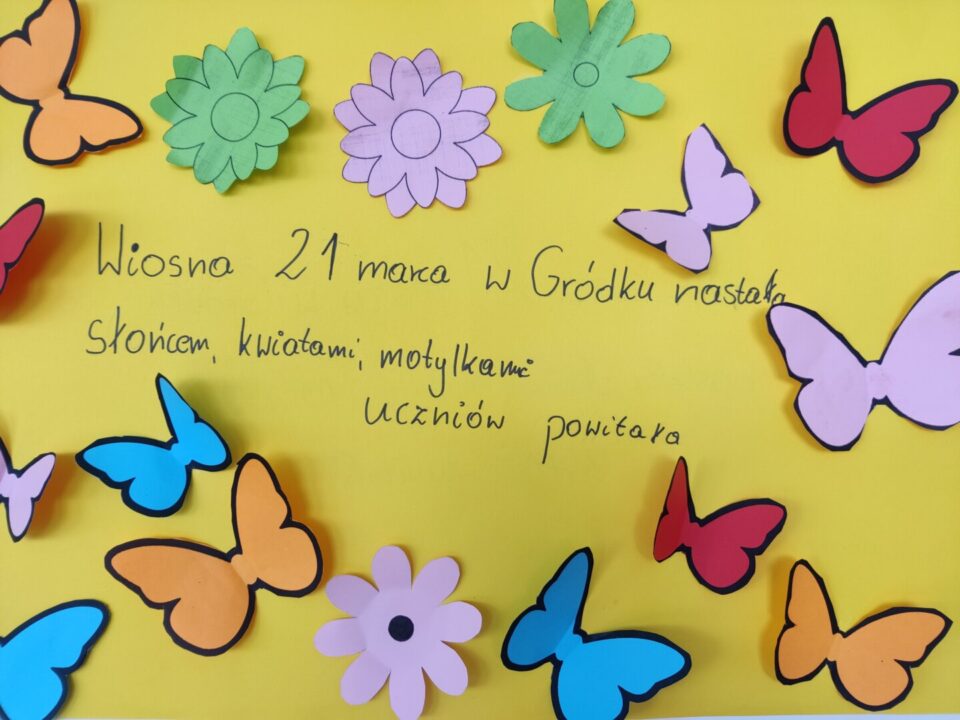 Wiosna 21 marca w Gródku nastała
słońcem, kwiatami, motylkami
uczniów powitała